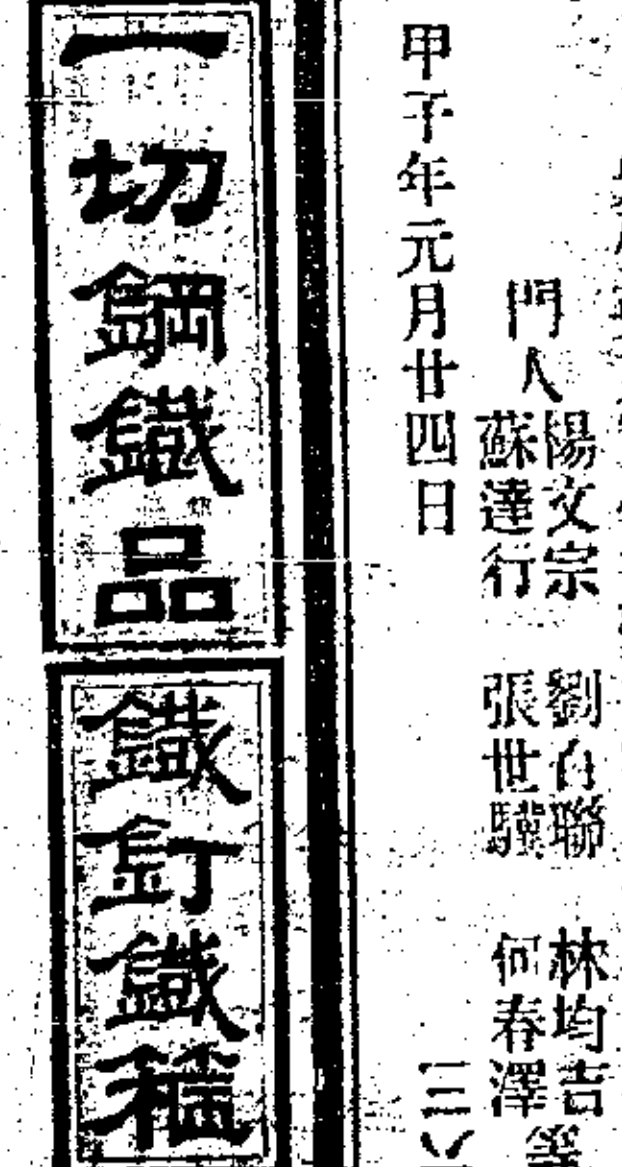 門人
楊文宗 劉百聯 林均吉
蘇達行 張世驥 何春澤 等
甲子年元月廿四日
一切鋼鐵品
鐵釘鐵